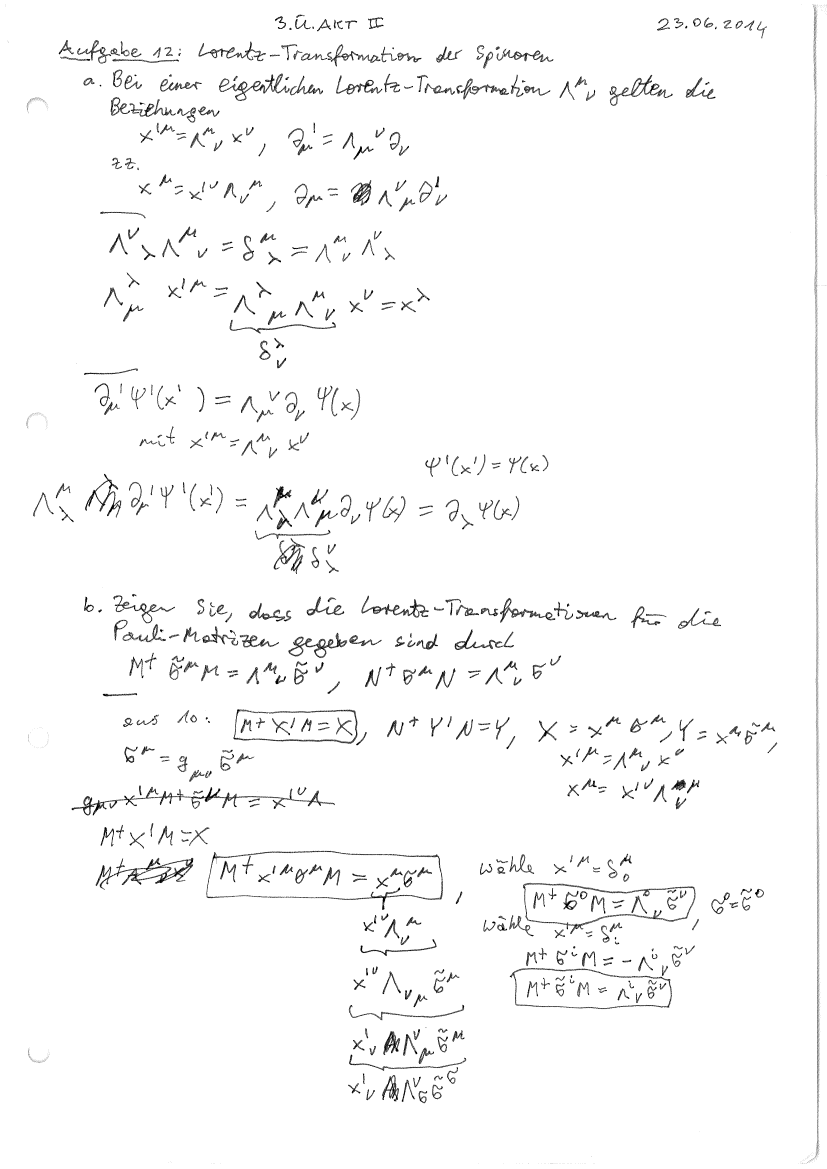 3.Ü. AKT II 23.06.2014
Aufgabe 12: Lorentz-Transformation der Spinoren
a. Bei einer eigentlichen Lorentz-Transformation Λ^μ_ν gelten die
Beziehungen
x'^μ = Λ^μ_ν x^ν , ∂'_μ = Λ_μ^ν ∂_ν
zz.
x^μ = x'^ν Λ_ν^μ , ∂_μ = Λ^ν_μ ∂'_ν
Λ^ν_λ Λ^μ_ν = δ^μ_λ = Λ^μ_ν Λ^ν_λ
Λ^λ_μ x'^μ = Λ^λ_μ Λ^μ_ν x^ν = x^λ
δ^λ_ν
∂'_μ Ψ'(x') = Λ_μ^ν ∂_ν Ψ(x)
mit x'^μ = Λ^μ_ν x^ν
Ψ'(x') = Ψ(x)
Λ^μ_λ ∂'_μ Ψ'(x') = Λ^μ_λ Λ^ν_μ ∂_ν Ψ(x) = ∂_λ Ψ(x)
δ^ν_λ
b. Zeigen Sie, dass die Lorentz-Transformationen für die
Pauli-Matrizen gegeben sind durch
M† σ̃^μ M = Λ^μ_ν σ̃^ν , N† σ^μ N = Λ^μ_ν σ^ν
aus 10: M† X' M = X , N† Y' N = Y , X = x^μ σ^μ , Y = x^μ σ̃^μ ,
σ^μ = g_μν σ̃^μ x'^μ = Λ^μ_ν x^ν
x^μ = x'^ν Λ_ν^μ
g_μν x'^μ M† σ̃^ν M = x'^ν Λ
M† X' M = X
M† x'^μ σ^μ M = x^μ σ^μ , wähle x'^μ = δ^μ_0
M† σ^0 M = Λ^0_ν σ̃^ν , σ^0 = σ̃^0
x'^ν Λ_ν^μ wähle x'^μ = δ^μ_i
M† σ^i M = - Λ^i_ν σ̃^ν
x'^ν Λ_νμ σ̃^μ M† σ̃^i M = Λ^i_ν σ̃^ν
x'_ν Λ^ν_μ σ̃^μ
x'_ν Λ^ν_σ σ̃^σ